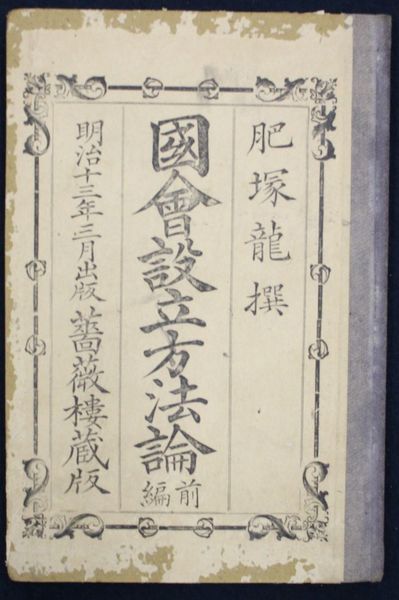 肥塚龍撰
國會設立方法論
前編
明治十三年三月出版 薔薇樓蔵版